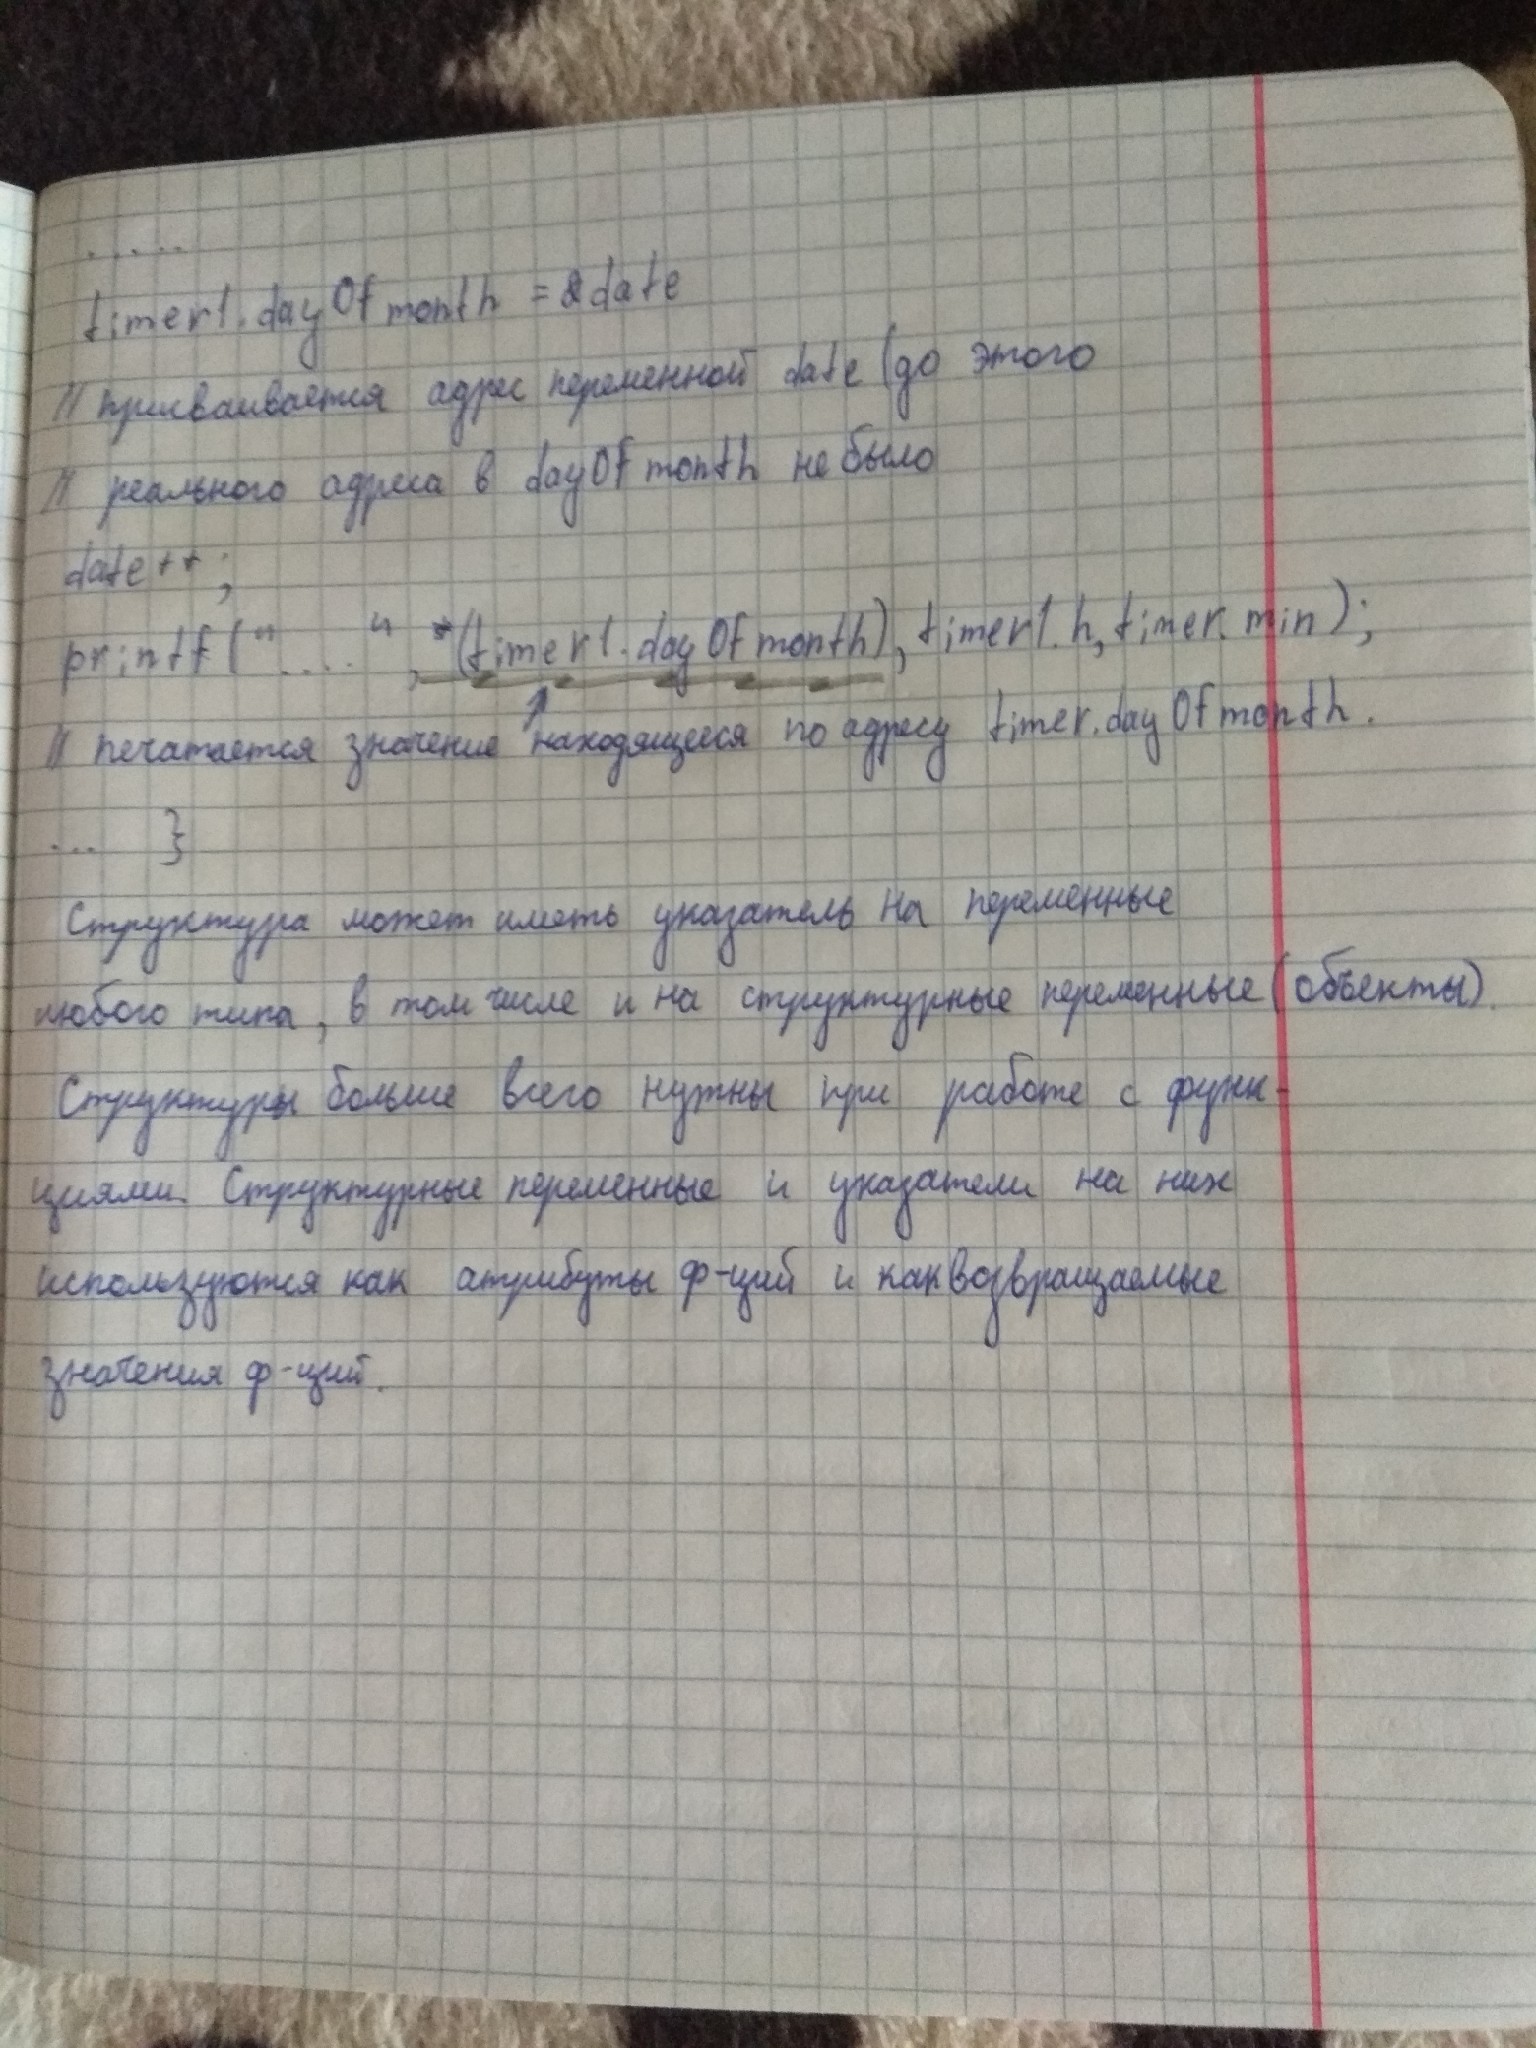 .....
timer1.dayOfmonth = &date
// присваивается адрес переменной date (до этого
// реального адреса в dayOfmonth не было
date++;
printf("....", *(timer1.dayOfmonth), timer1.h, timer.min);
// печатается значение находящееся по адресу timer.dayOfmonth.
... }
Структура может иметь указатель на переменные
любого типа, в том числе и на структурные переменные (объекты).
Структуры больше всего нужны при работе с функ-
циями. Структурные переменные и указатели на них
используются как атрибуты ф-ций и как возвращаемые
значения ф-ций.